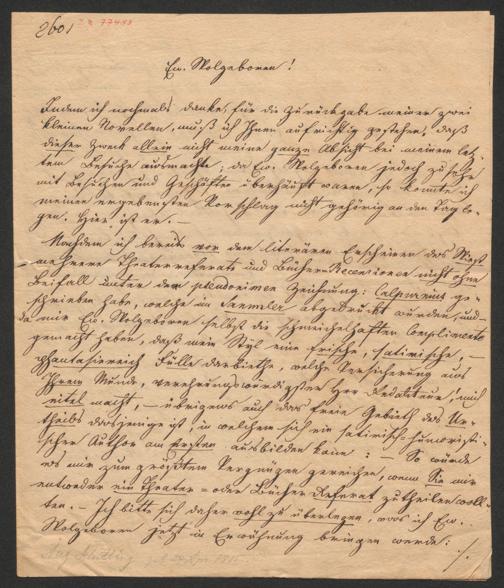 2601
I.N. 77488
Ew. Wolgeboren!
Indem ich nochmals danke, für die Zurückgabe meiner zwei
kleinen Novellen, muß ich Ihnen aufrichtig gestehen, daß
dieser Zweck allein nicht meine ganze Absicht bei meinem letz-
ten Besuche ausmachte; da Ew. Wolgeboren jedoch zu sehr
mit Besuchen und Geschäften überhäuft waren, so konnte ich
meinen ergebensten Vorschlag nicht gehörig an den Tag le-
gen. Hier ist er. —
Nachdem ich bereits vor dem literären Erscheinen des
mehrere Theaterreferate und Bücher-Recensionen nicht ohne
Beifall unter der pseudonimen Zeichnung: Calpurnius ge-
schrieben habe, welche im Sammler abgedruckt wurden, und
da mir Ew. Wolgeboren selbst die schmeichelhaften Complimente
gemacht haben, daß mein Styl eine frische, satirische, —
phantasiereiche Fülle darbiethe, welche Versicherung aus
Ihrem Munde, verehrungswürdigster Herr Redakteur, mich
eitel macht, — übrigens auch das freie Gebieth des Ur-
theils dasjenige ist, in welchem sich ein satirisch-humoristi-
scher Author am ersten ausbilden kann: — So würde
es mir zum größten Vergnügen gereichen, wenn Sie mir
entweder ein Theater- oder Bücher-Referat zutheilen woll-
ten. — Ich bitte sich daher wohl zu überlegen, was ich Ew.
Wolgeboren jetzt in Erwähnung bringen werde:
./.